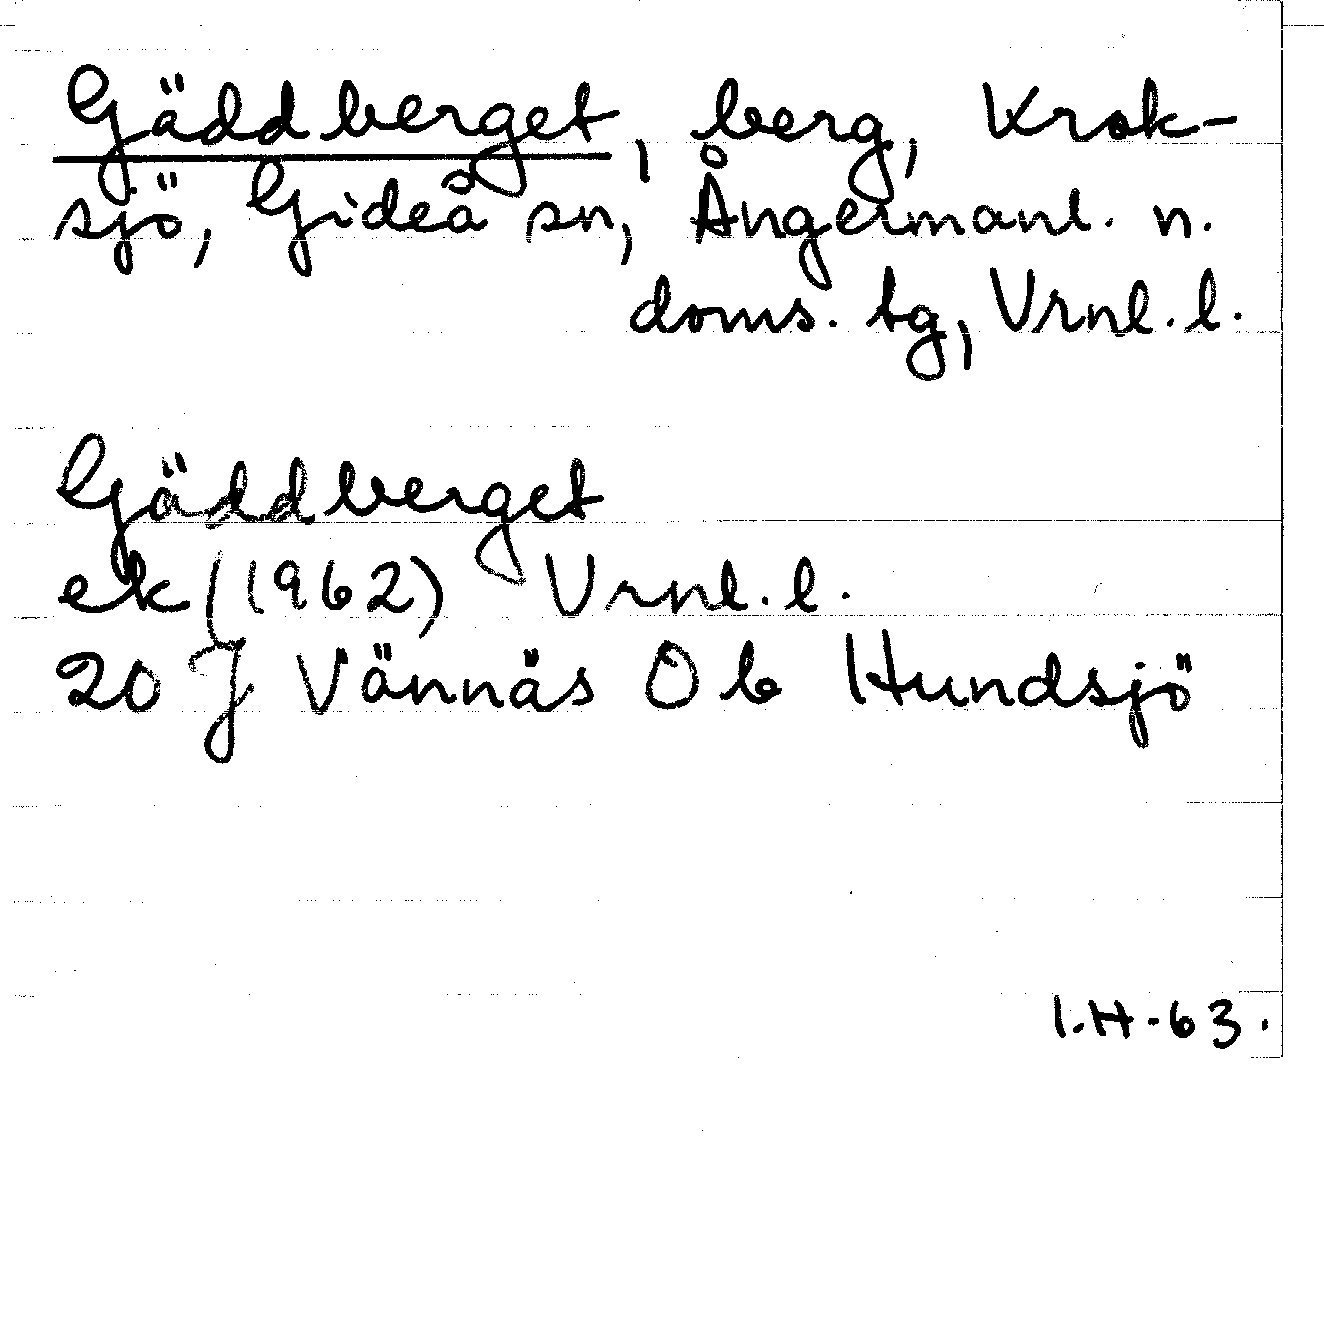 Gäddberget, berg, Krok-
sjö, Gideå sn, Ångermanl. n.
doms. tg, Vrnl. l.
Gäddberget
ek (1962) Vrnl. l.
20 J Vännäs O b Hundsjö
I.H-63.